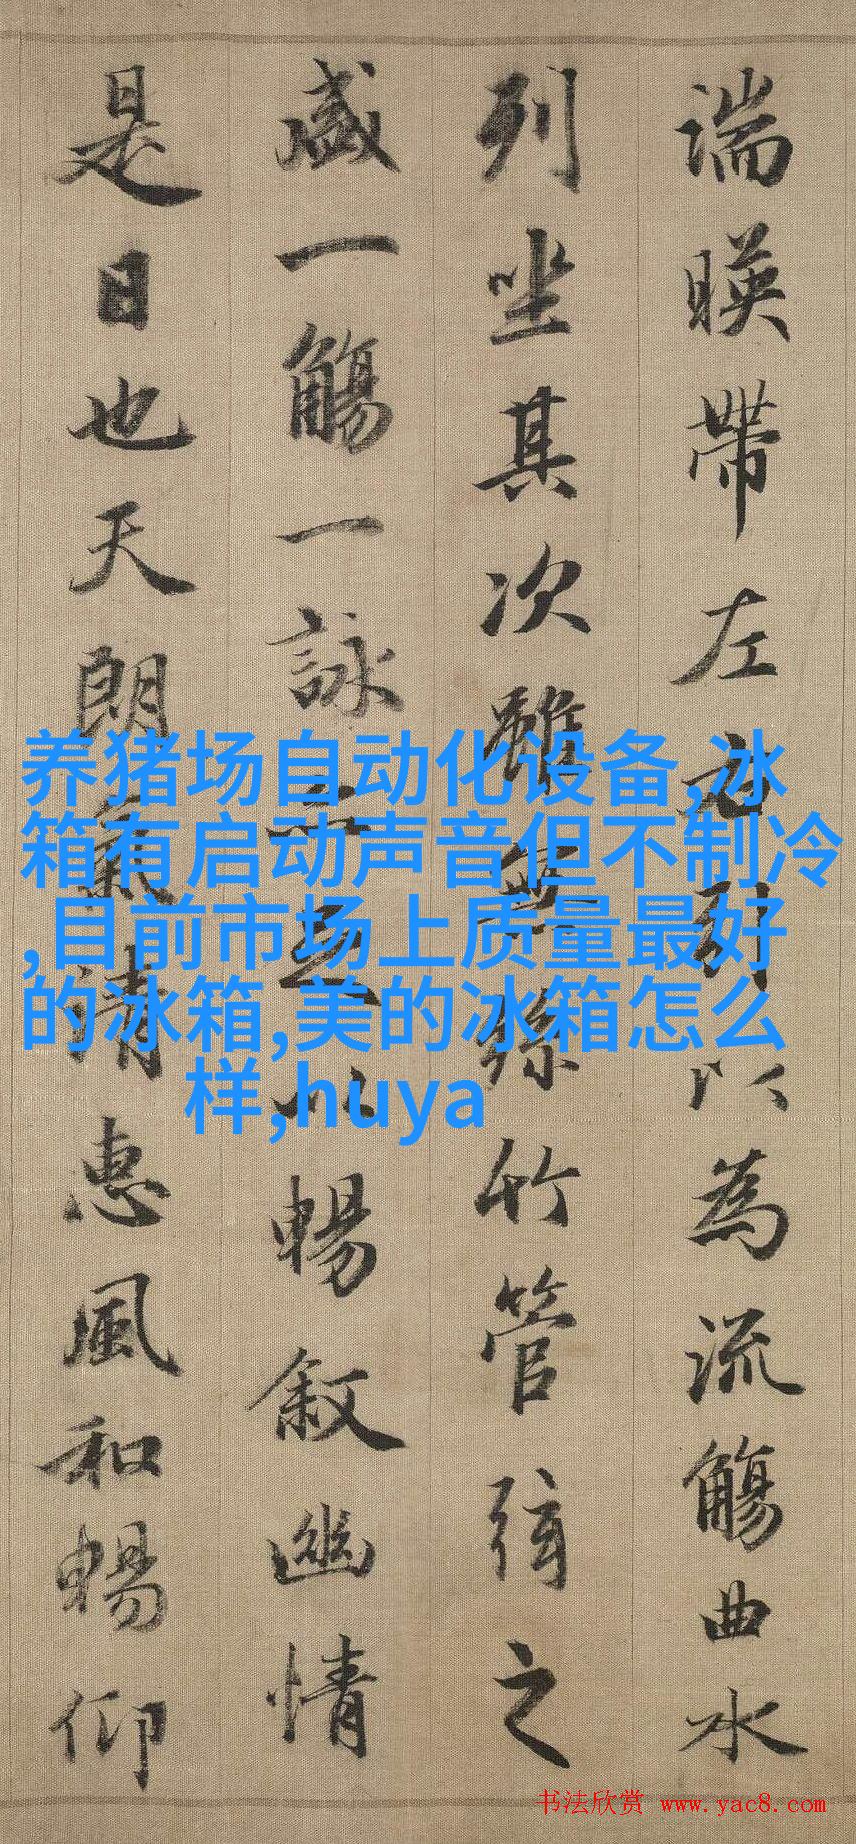 湍暎帶左右引以為流觴曲水
列坐其次雖無絲竹管弦之
盛一觴一詠亦足以暢敘幽情
是日也天朗氣清惠風和暢仰
养猪场自动化设备,冰
箱有启动声音但不制冷
,目前市场上质量最好
的冰箱,美的冰箱怎么
样,huya
书法欣赏 www.yac8.com